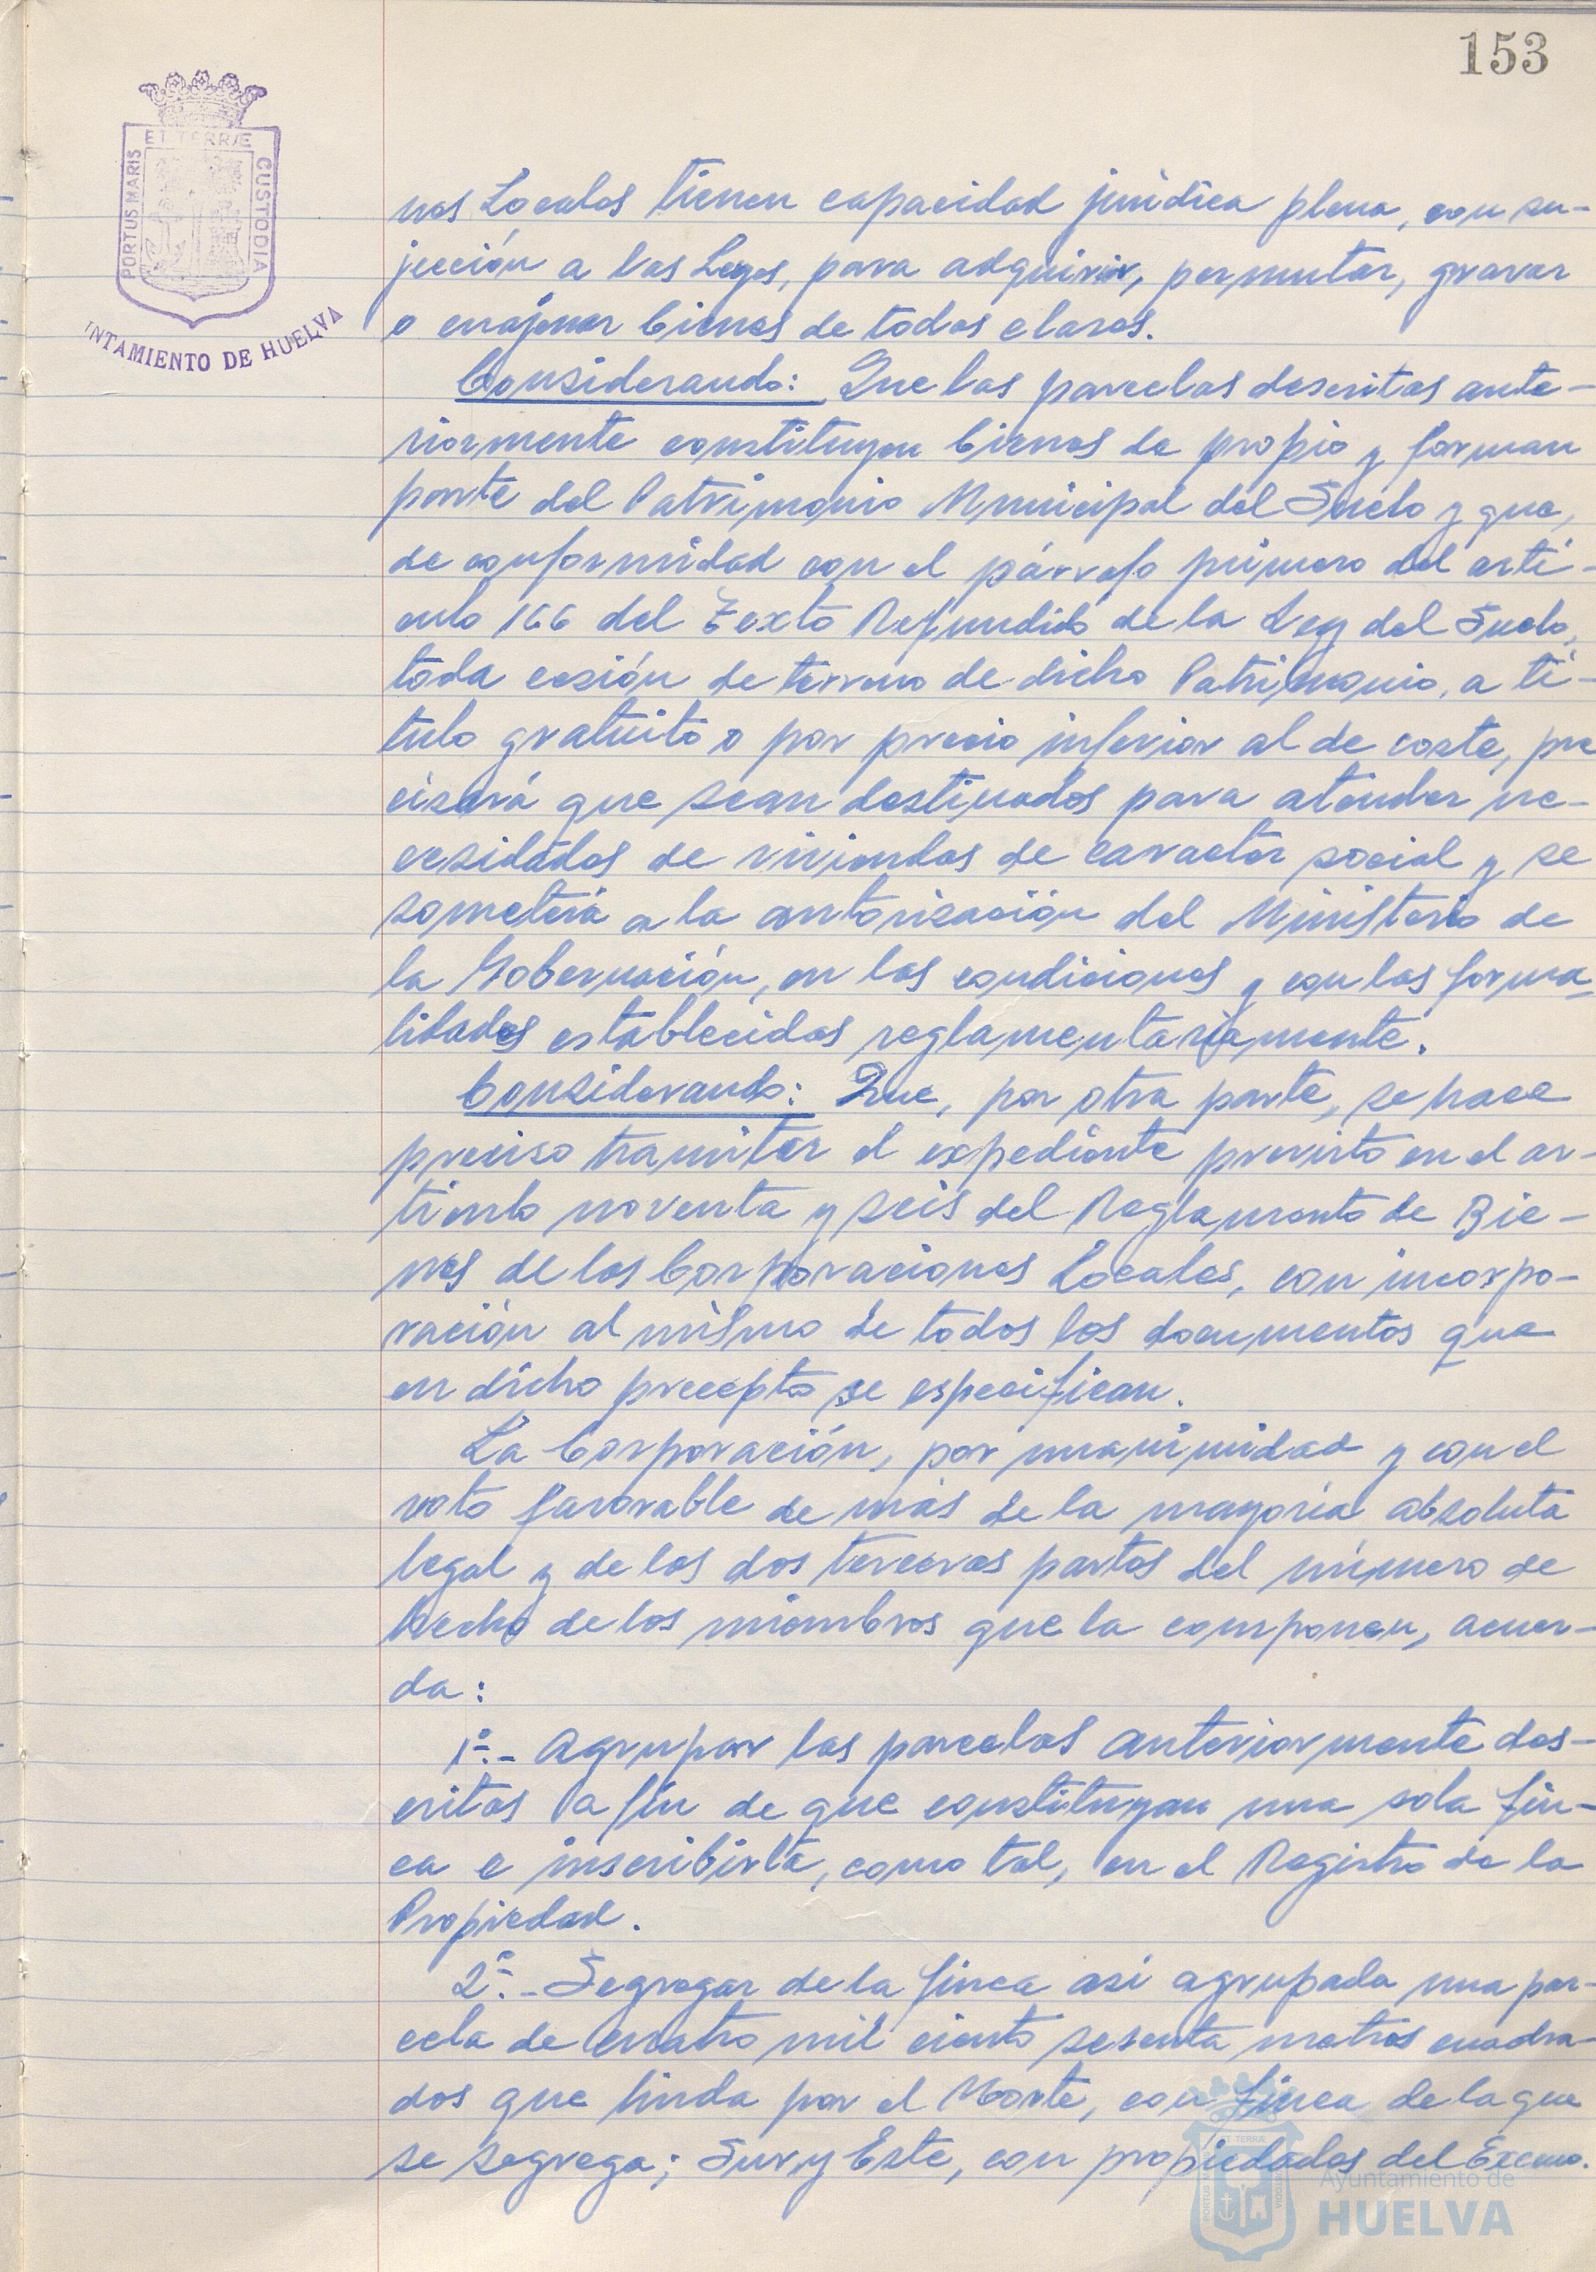 153
ET TERRÆ
PORTUS MARIS
CUSTODIA
NTAMIENTO DE HUELVA
nes Locales tienen capacidad jurídica plena, con su-
jección a las Leyes, para adquirir, permutar, gravar
o enajenar bienes de todas clases.
Considerando: Que las parcelas descritas ante-
riormente constituyen bienes de propio y forman
parte del Patrimonio Municipal del Suelo y que,
de conformidad con el párrafo primero del artí-
culo 166 del Texto Refundido de la Ley del Suelo,
toda cesión de terreno de dicho Patrimonio, a tí-
tulo gratuito o por precio inferior al de coste, pre
cisará que sean destinados para atender ne-
cesidades de viviendas de caracter social y se
someterá a la autorización del Ministerio de
la Gobernación, en las condiciones y con las forma-
lidades establecidas reglamentariamente.
Considerando: Que, por otra parte, se hace
preciso tramitar el expediente previsto en el ar-
tículo noventa y seis del Reglamento de Bie-
nes de las Corporaciones Locales, con incorpo-
ración al mismo de todos los documentos que
en dicho precepto se especifican.
La Corporación, por unanimidad y con el
voto favorable de más de la mayoría absoluta
legal y de las dos terceras partes del número de
hecho de los miembros que la componen, acuer-
da:
1º.- Agrupar las parcelas anteriormente des-
critas a fín de que constituyan una sola fin-
ca e inscribirla, como tal, en el Registro de la
Propiedad.
2º.- Segregar de la finca así agrupada una par-
cela de cuatro mil ciento sesenta metros cuadra-
dos que linda por el Norte, con finca de la que
se segrega; Sur y Este, con propiedades del Excmo.
Ayuntamiento de
HUELVA